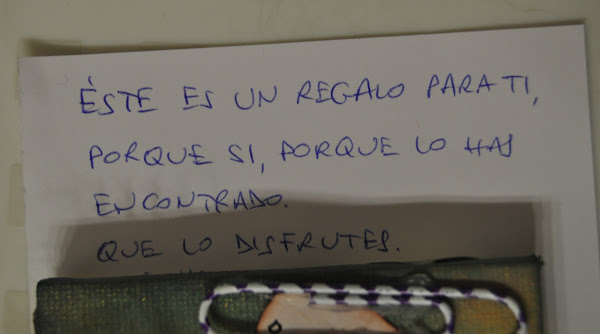 ÉSTE ES UN REGALO PARA TI,
PORQUE SI, PORQUE LO HAS
ENCONTRADO.
QUE LO DISFRUTES.